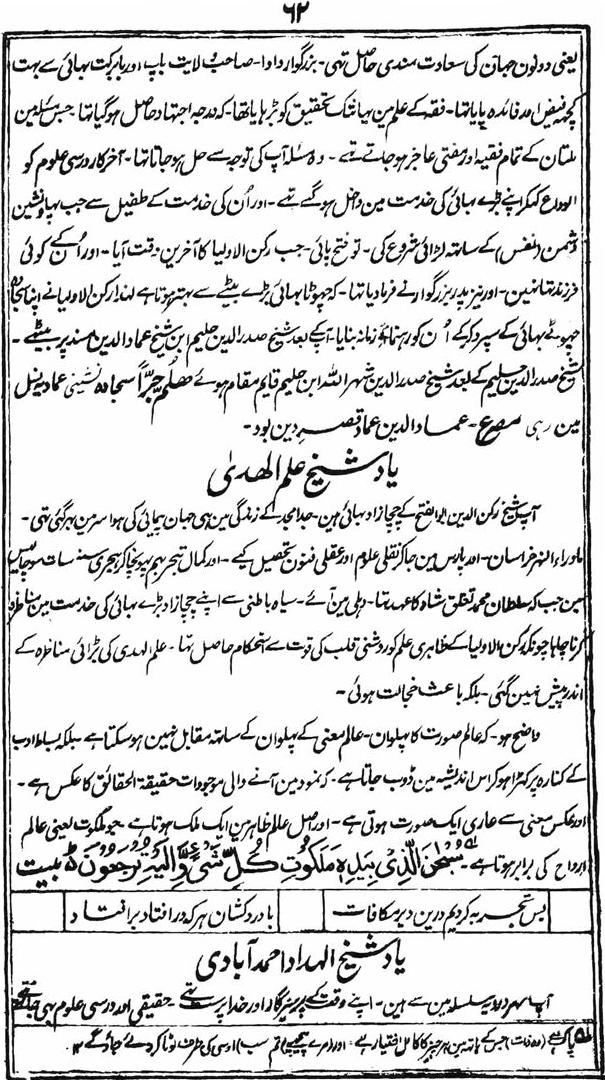 ٦٢
یعنی دونون جہان کی سعادت مندی حاصل تہی - بزرگوار دادا - صاحب ولایت باپ اور بابرکت بہائی سے بہت
کچہ فیض اور فائدہ پایا تہا - فقہ کے علم مین یہانتک تحقیق کو بڑہایا تھا - کہ درجہ اجتہاد حاصل ہوگیا تہا جس مسئلہ مین
ملتان کے تمام فقیہ اور مفتی عاجز ہوجاتے تہے - وہ مسئلہ آپ کی توجہ سے حل ہوجاتا تہا - آخر کار درسی علوم کو
الوداع کہکر اپنے بڑے بہائی کی خدمت مین داخل ہوگئے تہے - اور اُن کی خدمت کے طفیل سے جب پہلو نشین
دشمن (نفس) کے ساتہ لڑائی شروع کی - تو فتح پائی - جب رکن الاولیا کا آخرین وقت آیا - اور اُنکے کوئی
فرزند تہا نہین - اور نیز پدر بزرگوار نے فرمادیا تہا - کہ چہوٹا بہائی بڑے بیٹے سے بہتر ہوتا ہے لہذا رکن الاولیا نے اپنا سجادہ
چہوٹے بہائی کے سپرد کرکے اُن کو رہنمائے زمانہ بنایا - آپکے بعد شیخ صدر الدین حلیم ابن شیخ عماد الدین مسند پر بیٹھے -
شیخ صدر الدین حلیم کے بعد شیخ صدر الدین شہر اللہ ابن حلیم قایم مقام ہوئے ھلم جرًّا سجادہ نشینی عمادیہ نسل
مین رہی مصرع - عماد الدین عماد قصر دین بود -
یاد شیخ علم الھدیٰ
آپ شیخ رکن الدین ابو الفتح کے چچازاد بہائی ہین - جد امجد کے زندگی مین ہی جہان پیمائی کی ہوا سر مین بہر گئی تہی -
ماوراء النہر خراسان - اور پارس مین جاکر نقلی علوم اور عقلی فنون تحصیل کیے - اور کمال تبحر بہم پہونچا کر ہجری سنہ سات سو چالیس
مین جب کہ سلطان محمد تغلق شاہ کا عہد تہا - دہلی مین آئے - سیاہ باطنی سے اپنے چچازاد بڑے بہائی کی خدمت مین مناظرہ
کرنا چاہا چونکہ رکن الاولیا کے ظاہری علم کو روشنی قلب کی قوت سے استحکام حاصل تہا - علم الہدی کی بڑائی مناظرہ کے
اندر پیش نہین گئی - بلکہ باعث خجالت ہوئی -
واضح ہو - کہ عالم صورت کا پہلوان - عالم معنی کے پہلوان کے ساتہ مقابل نہین ہوسکتا ہے - بلکہ بساط ادب
کے کنارہ پر کھڑا ہوکر اس اندیشہ مین ڈوب جاتا ہے - کہ نمود مین آنے والی موجودات حقیقۃ الحقائق کا عکس ہے -
اور عکس معنی سے عاری ایک صورت ہوتی ہے - اور اصل عالم ظاہر مین ایک ملک ہوتا ہے - جو ملکوت یعنی عالم
ارواح کی برابر ہوتا ہے - سُبْحٰنَ الَّذِیْ بِیَدِهٖ مَلَكُوْتُ كُلِّ شَیْءٍ وَّاِلَیْهِ تُرْجَعُوْنَ بیت
بس تجربہ کردیم درین دیر مکافات با دردکشان ہر کہ در افتاد بر افتاد
یاد شیخ الہداد احمد آبادی
آپ سہروردیہ سلسلہ مین سے ہین - اپنے وقت کے پرہیزگار اور خدا پرست تہے - حقیقی اور درسی علوم بہی جانتے تہے
پاک ہے (وہ ذات) جس کے ہاتہ مین ہر چیز کا کامل اختیار ہے - اور (مرے پیچھے) تم سب (اوسی کی طرف لوٹا کر لائے جاؤگے ۱۲